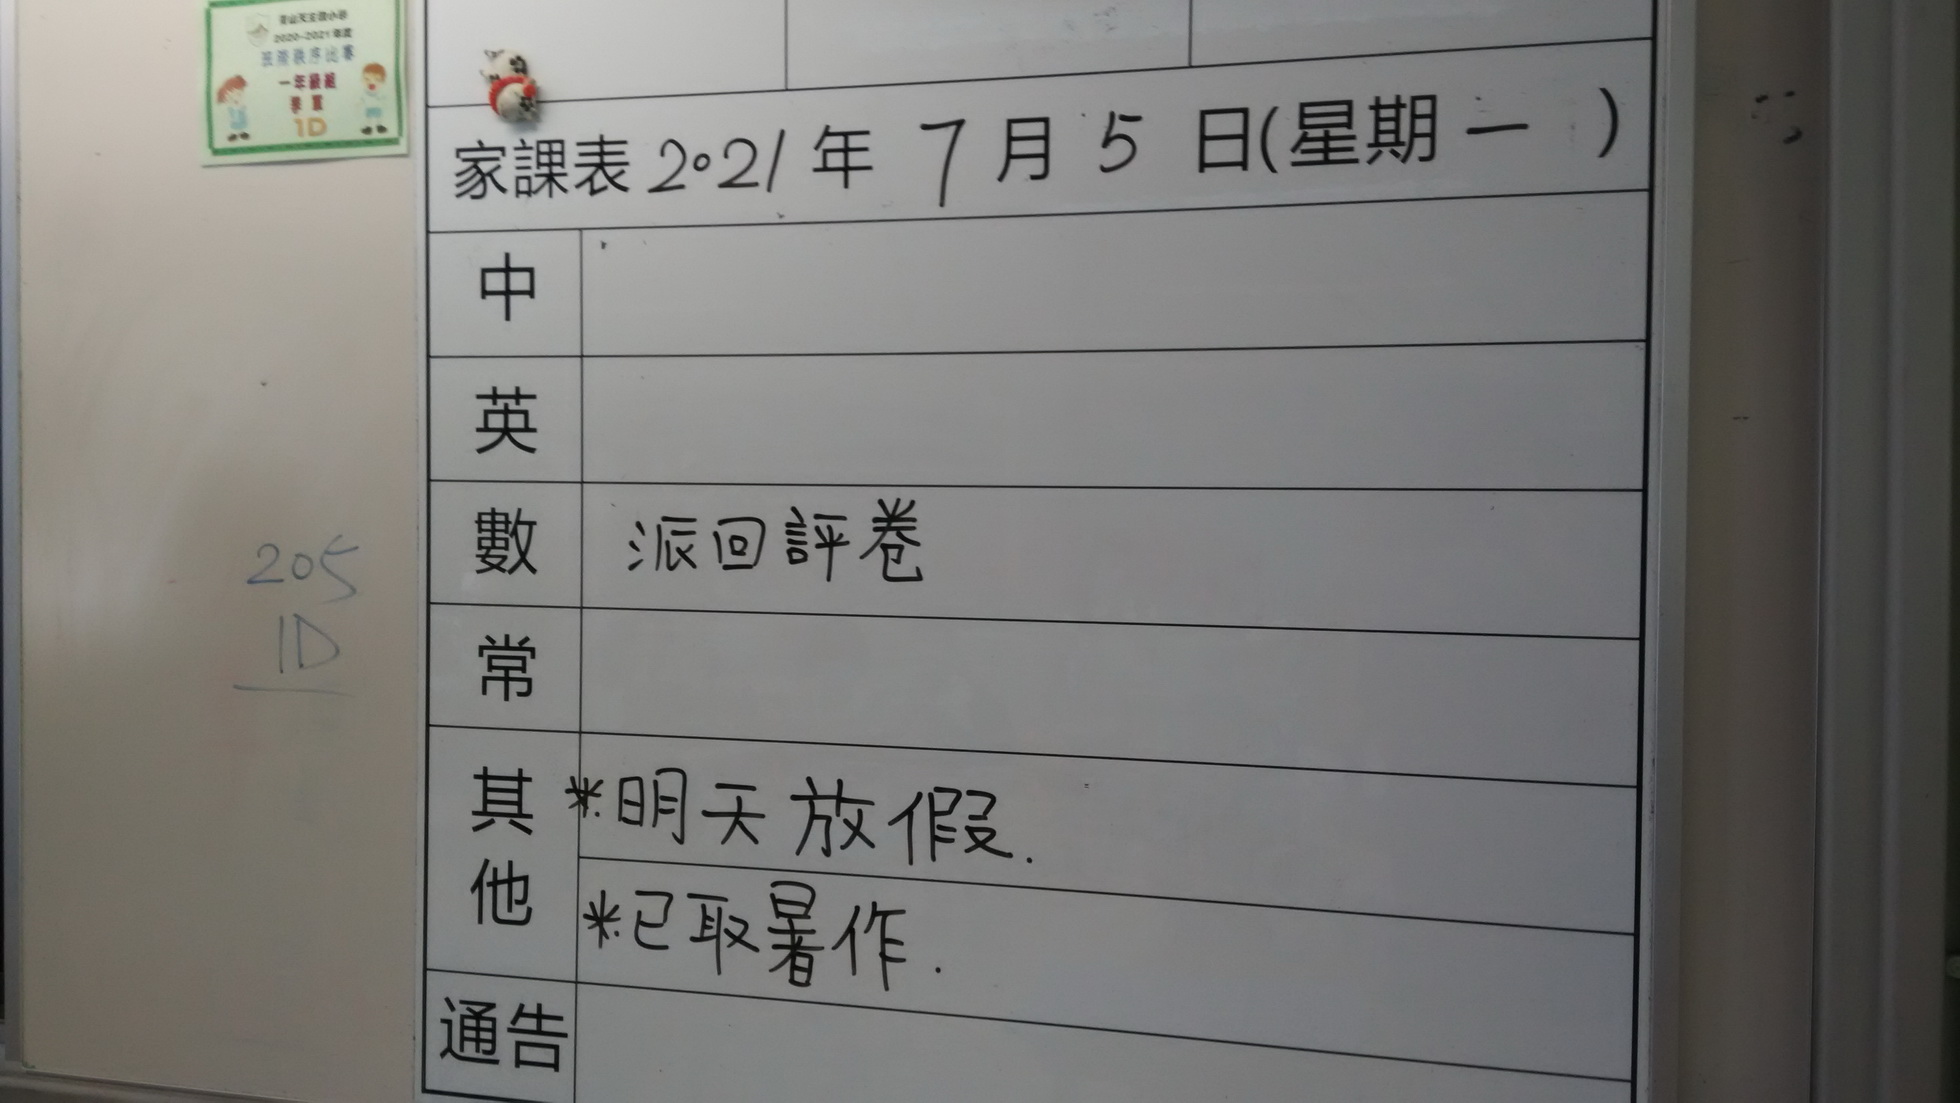 2020-2021年度
班際秩序比賽
一年級組
季軍
1D
家課表 2021 年 7 月 5 日(星期 一 )
中
英
數 派回評卷
常
其他 *明天放假.
*已取暑作.
通告
205
1D